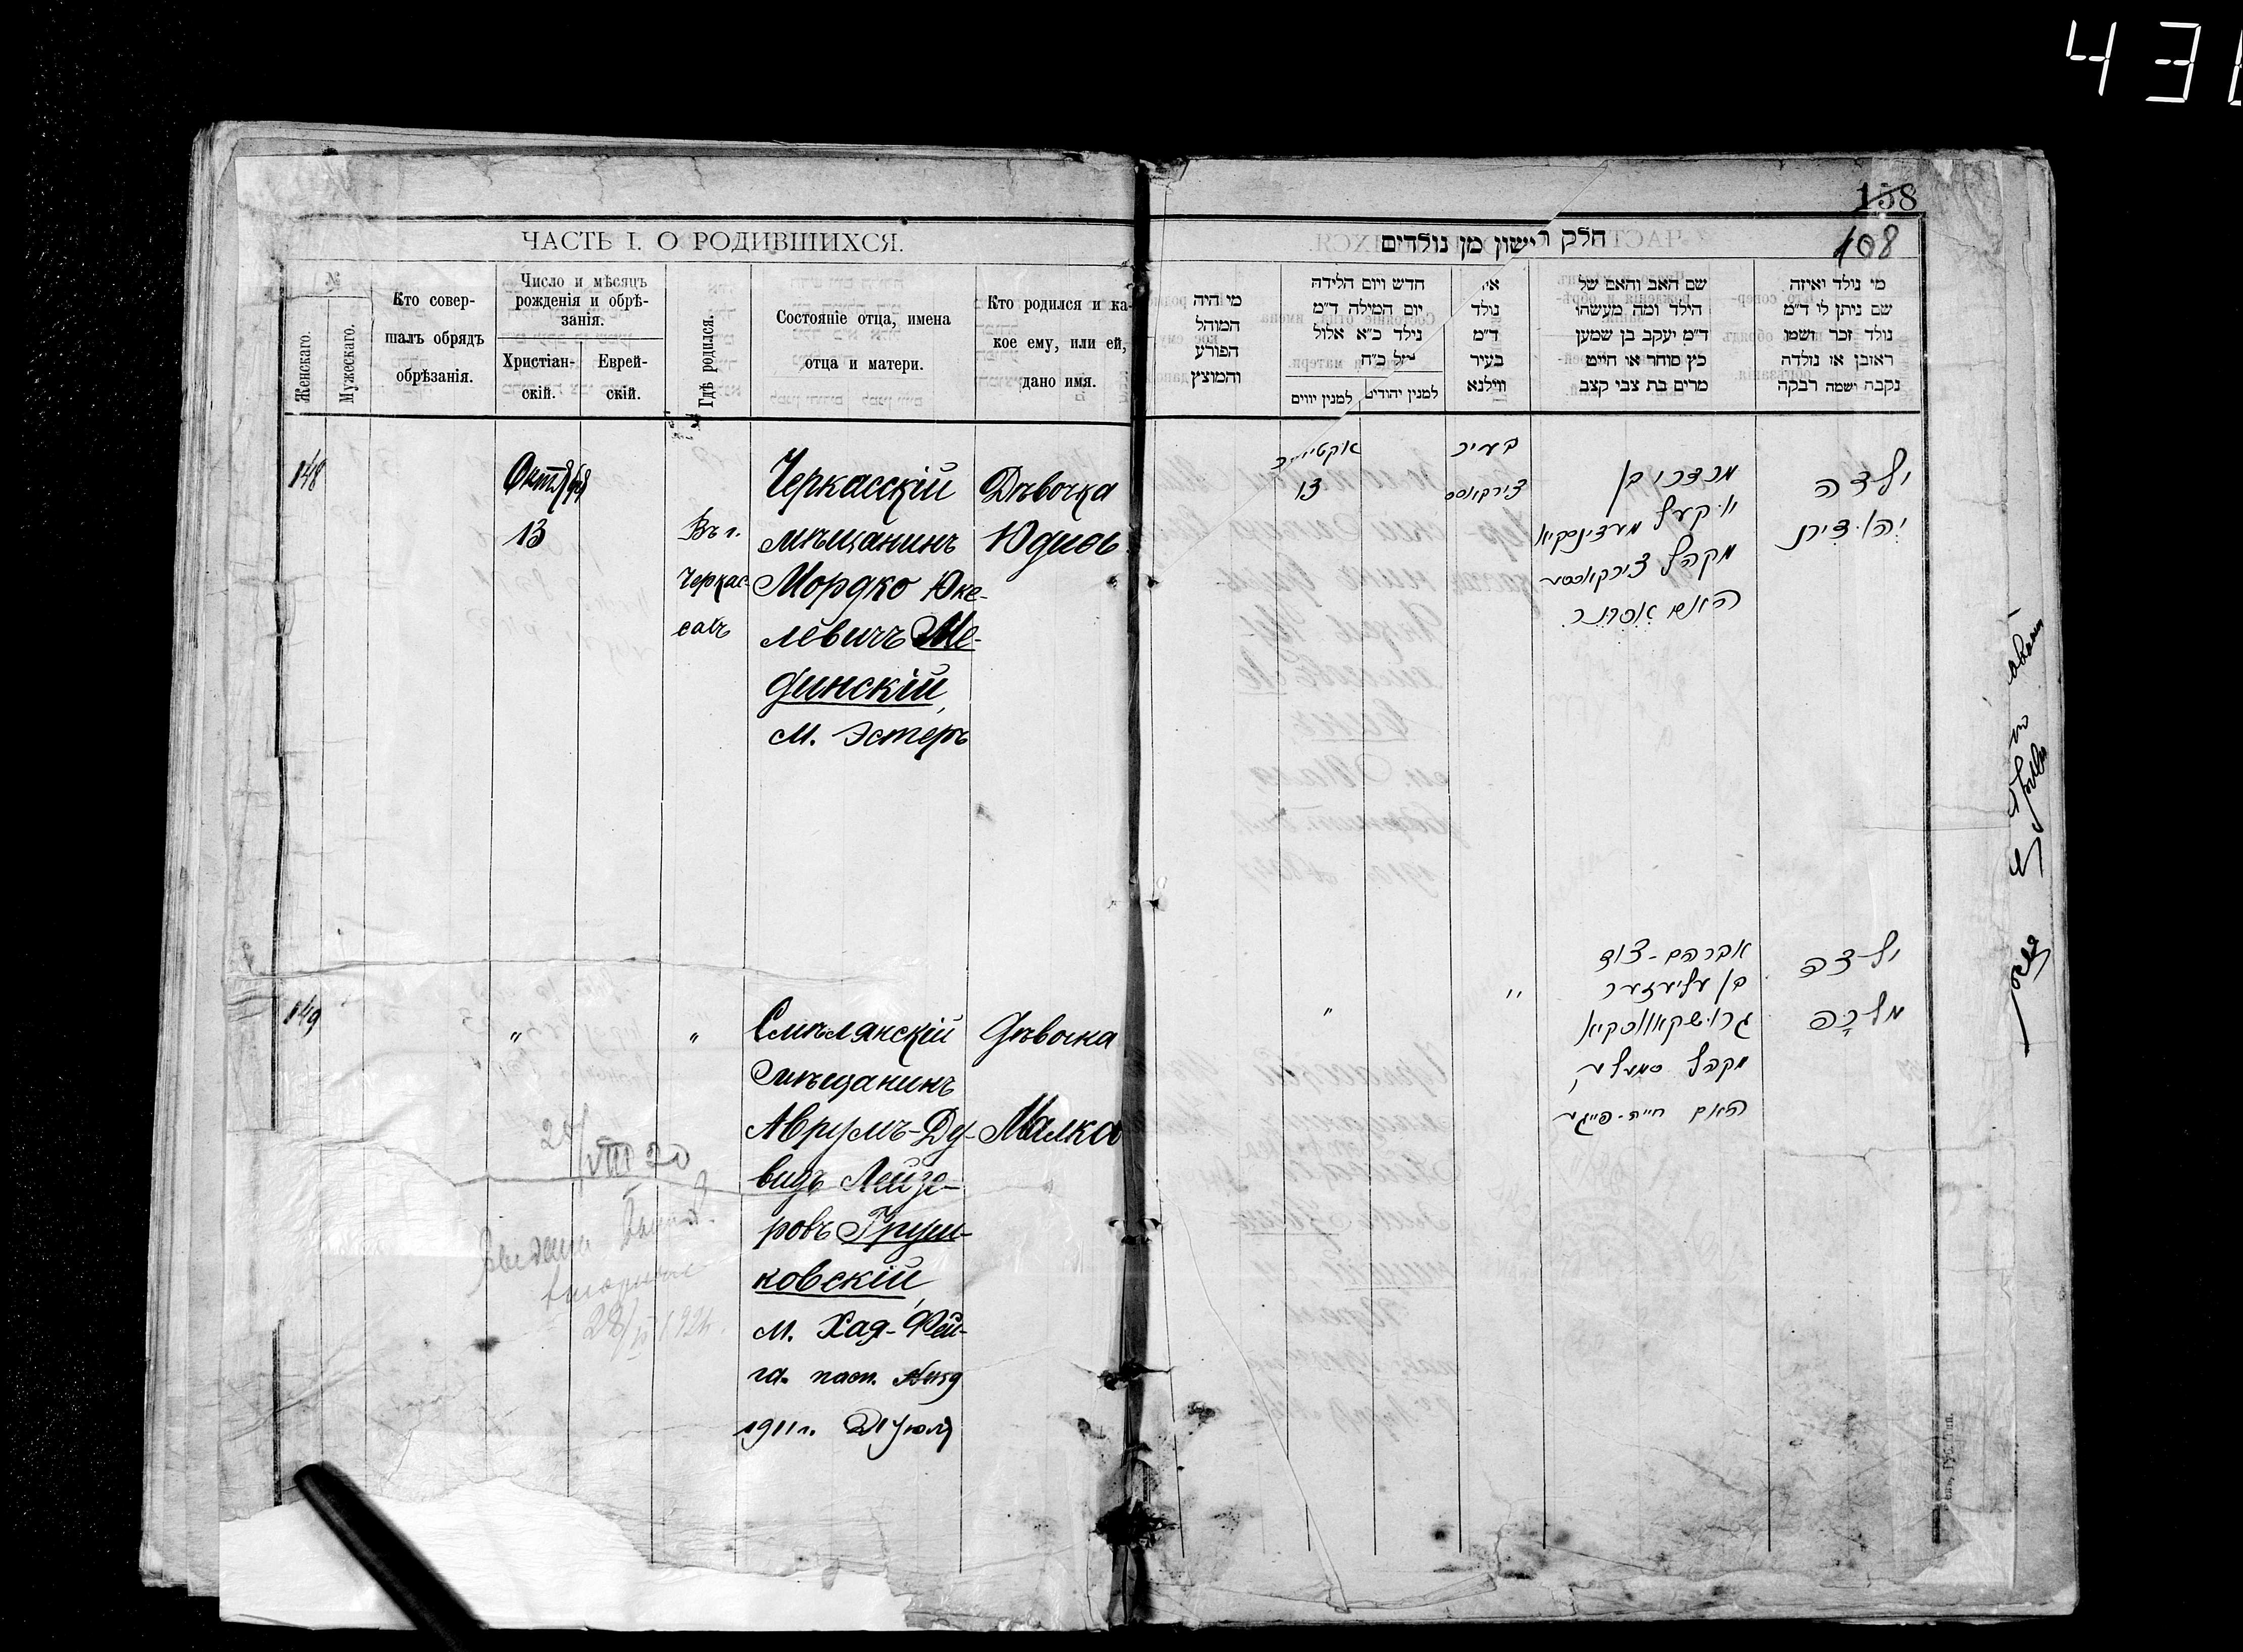 431
ЧАСТЬ I. О РОДИВШИХСЯ.
№
Женскаго.
Мужескаго.
Кто совер-
шалъ обрядъ
обрѣзанія.
Число и мѣсяцъ
рожденія и обрѣ-
занія.
Христіан-
скій.
Еврей-
скій.
Гдѣ родился.
Состояніе отца, имена
отца и матери.
Кто родился и ка-
кое ему, или ей,
дано имя.
148
Октября
13
Въ г.
Черкас-
сахъ
Черкасскій
мѣщанинъ
Мордко Юке-
левичъ Ме-
динскій,
м. Эстеръ
Дѣвочка
Юдиѳь
149
"
"
Смѣлянскій
мѣщанинъ
Аврумъ-Ду-
видъ Лейзе-
ровъ Груш-
ковскій,
м. Хая-Фей-
га.
1911 г.
Дѣвочка
Малка
VIII 20
158
108
חלק ראשון מן נולדים
מי היה
המוהל
הפורע
והמוצץ
חדש ויום הלידה
יום המילה ד"מ
נילד כ"א אלול
כ"ח
למנין יווים
למנין יהודים
נולד
ד"מ
בעיר
ווילנא
שם האב והאם של
הילד ומה מעשהו
ד"מ יעקב בן שמען
כץ סוחר או חייט
מרים בת צבי קצב
מי נולד ואיזה
שם ניתן לו ד"מ
נולד זכר ושמו
ראובן או נולדה
נקבה ושמה רבקה
13
בעיר
צירקאסס
מרדכי בן
יוקעל מעדינסקיא
מקהל צירקאססע
האם אסתר
ילדה
יהודית
"
"
אברהם-דוד
בן אליעזער
גרושקאווסקיא
מקהל סמעלע
האם חייה-פייגע
ילדה
מלכה